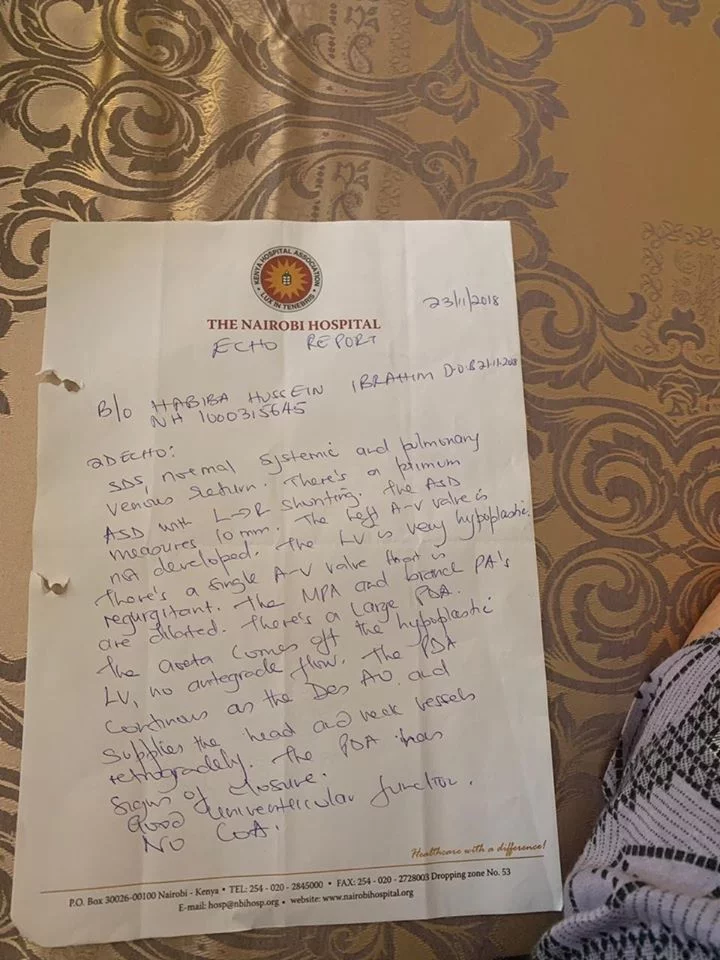 KENYA HOSPITAL ASSOCIATION
LUX IN TENEBRIS
23/11/2018
THE NAIROBI HOSPITAL
ECHO REPORT
B/o HABIBA HUSSEIN IBRAHIM D.O.B 21.11.2018
NH 1000315645
2D ECHO:
SDS, normal systemic and pulmonary
venous return. There's a primum
ASD with L→R shunting. The ASD
measures 10mm. The left A-V valve is
not developed. The LV is very hypoplastic.
There's a single A-V valve that is
regurgitant. The MPA and branch PA's
are dilated. There's a large PDA.
The aorta comes off the hypoplastic
LV, no antegrade flow. The PDA
continues as the Des AO and
supplies the head and neck vessels
retrogradely. The PDA has
signs of closure.
Good univentricular function.
NO COA.
Healthcare with a difference!
P.O. Box 30026-00100 Nairobi - Kenya • TEL: 254 - 020 - 2845000 • FAX: 254 - 020 - 2728003 Dropping zone No. 53
E-mail: hosp@nbihosp.org • website: www.nairobihospital.org